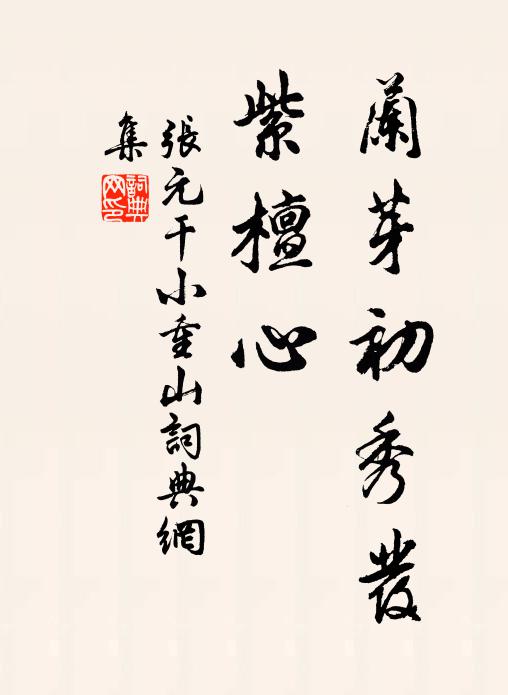 蘭芽初秀發
紫檀心
張元干小重山詞典網
集
詞典網印